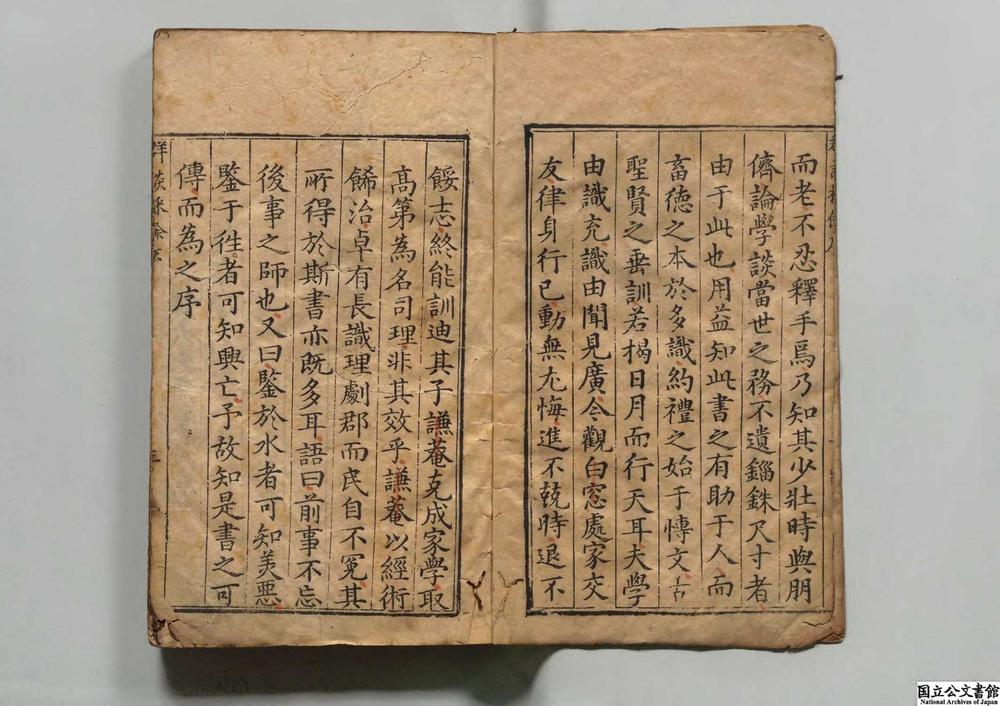 而老不忍釋手焉乃知其少壯時與朋
儕論學談當世之務不遺錙銖尺寸者
由于此也用益知此書之有助于人而
畜德之本於多識約禮之始于慱文古
聖賢之垂訓若揭日月而行天耳夫學
由識充識由聞見廣今觀白窓處家交
友律身行已動無尤悔進不兢時退不
餒志終能訓迪其子謙菴克成家學取
高第為名司理非其效乎謙菴以經術
餙治卓有長識理劇郡而民自不冤其
所得於斯書亦既多耳語曰前事不忘
後事之師也又曰鑒於水者可知美惡
鑒于徃者可知興亡予故知是書之可
傳而為之序
三
国立公文書館
National Archives of Japan